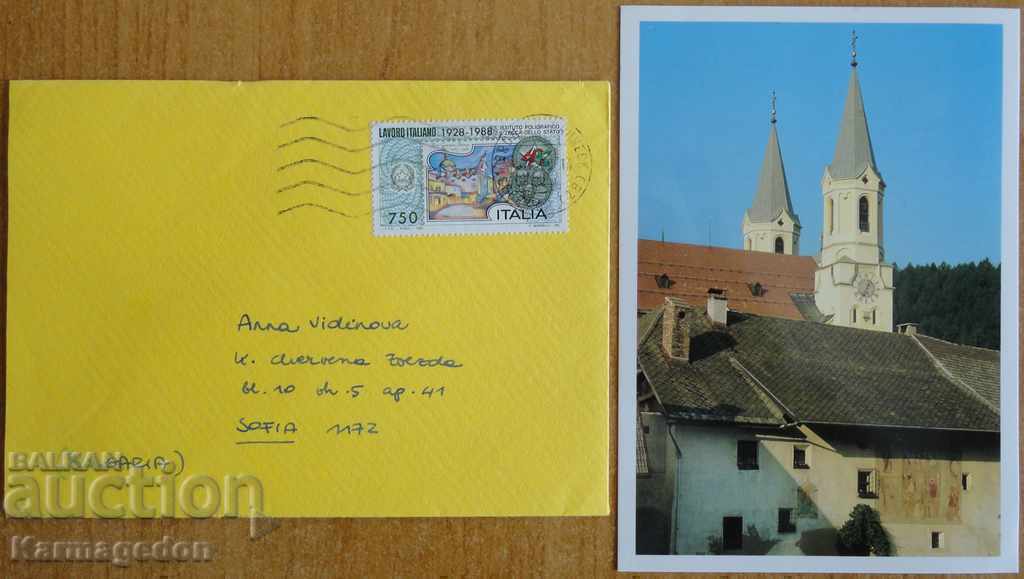 LAVORO ITALIANO 1928-1988 ISTITUTO POLIGRAFICO
E ZECCA DELLO STATO
750 ITALIA
Anna Vidinova
k. chervena zvezda
bl. 10 vh. 5 ap. 41
SOFIA 1172
GARIA)
BALKAN
auction
Karmagedon